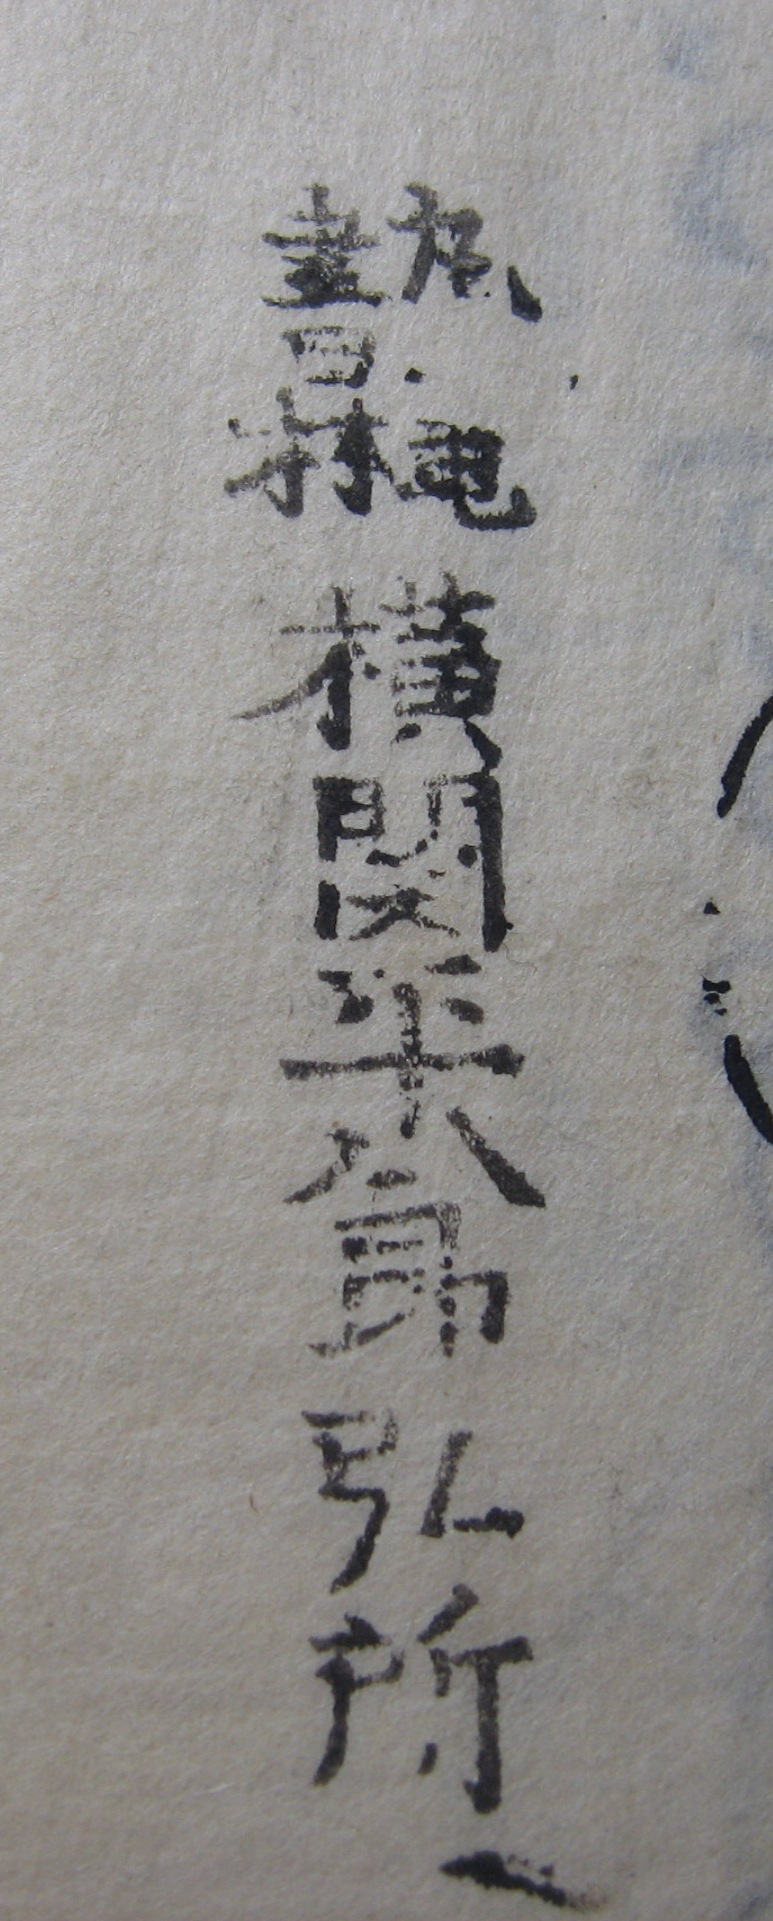 丸亀
書林
横関平八郎弘所